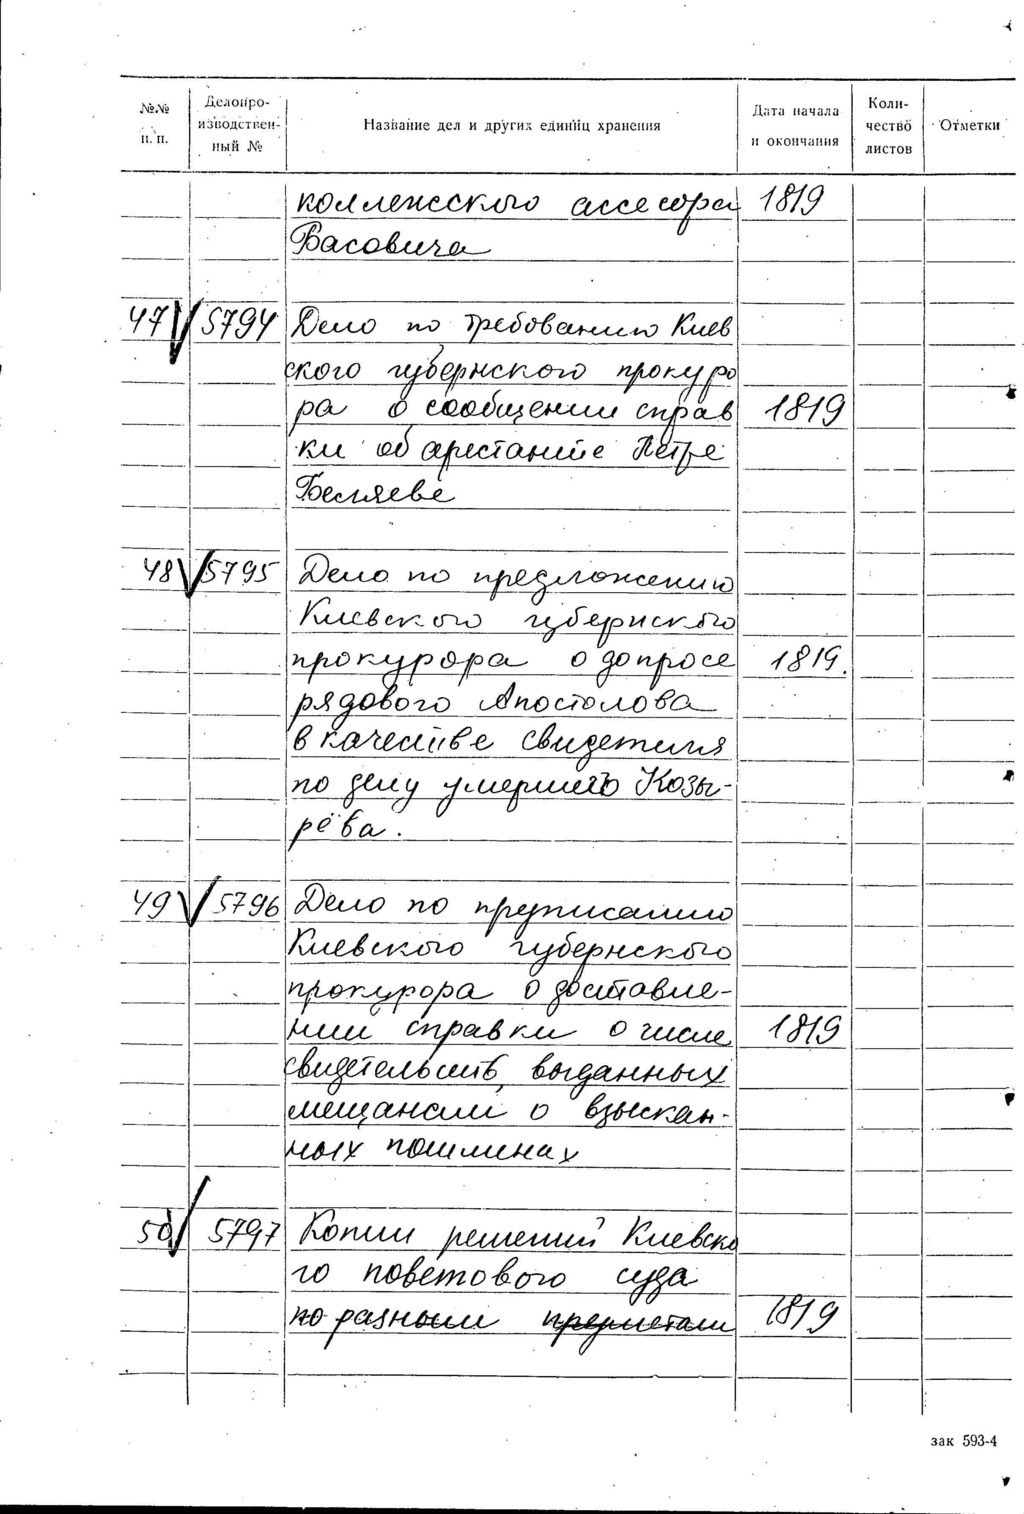 №№ п. п.
Делопроизводственный №
Название дел и других единиц хранения
Дата начала и окончания
Количество листов
Отметки
коллежского ассесора 1819
Васовича
47 5794 Дело по требованию Киев
ского губернского прокуро
ра о сообщении справ 1819
ки об арестанте Петре
Беляеве
48 5795 Дело по предложению
Киевского губернского
прокурора о допросе 1819.
рядового Апостолова
в качестве свидетеля
по делу умершего Козы-
рева.
49 5796 Дело по предписанию
Киевского губернского
прокурора о доставле-
нии справки о числе 1819
свидетельств, выданных
мещанам о взыскан-
ных пошлинах
50 5797 Копии решений Киевско
го поветового суда
по разным предметам 1819
зак 593-4